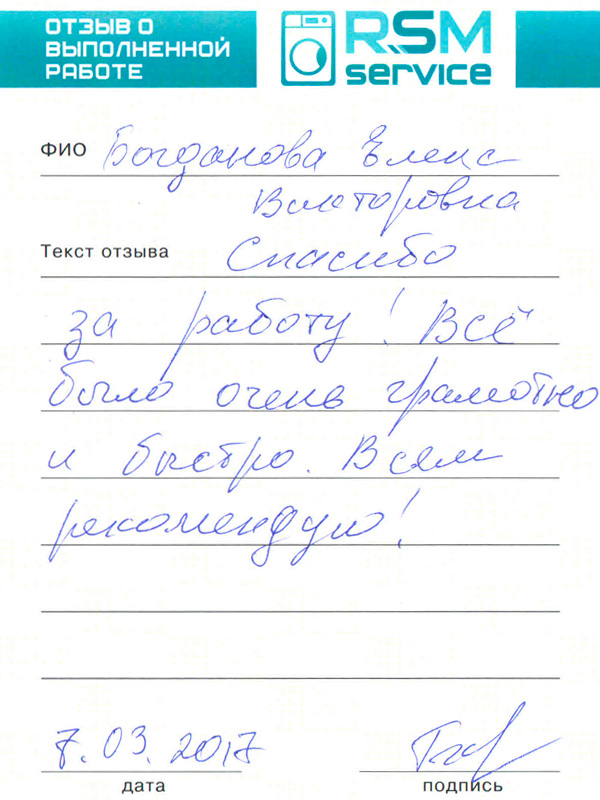 ОТЗЫВ О
ВЫПОЛНЕННОЙ
РАБОТЕ
RSM
service
ФИО Богданова Елена
Викторовна
Текст отзыва Спасибо
за работу! Всё
было очень грамотно
и быстро. Всем
рекомендую!
7.03.2017
дата подпись